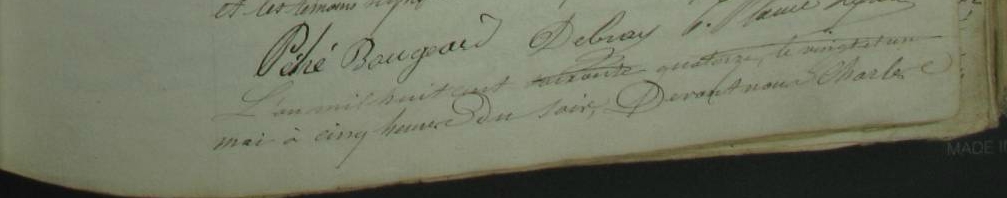 et les témoins signé
Péhé Bougeard Debray
L'an mil huit cent soixante quatorze, le vingt et un
mai à cinq heures du soir, Devant nous Charles
MADE IN